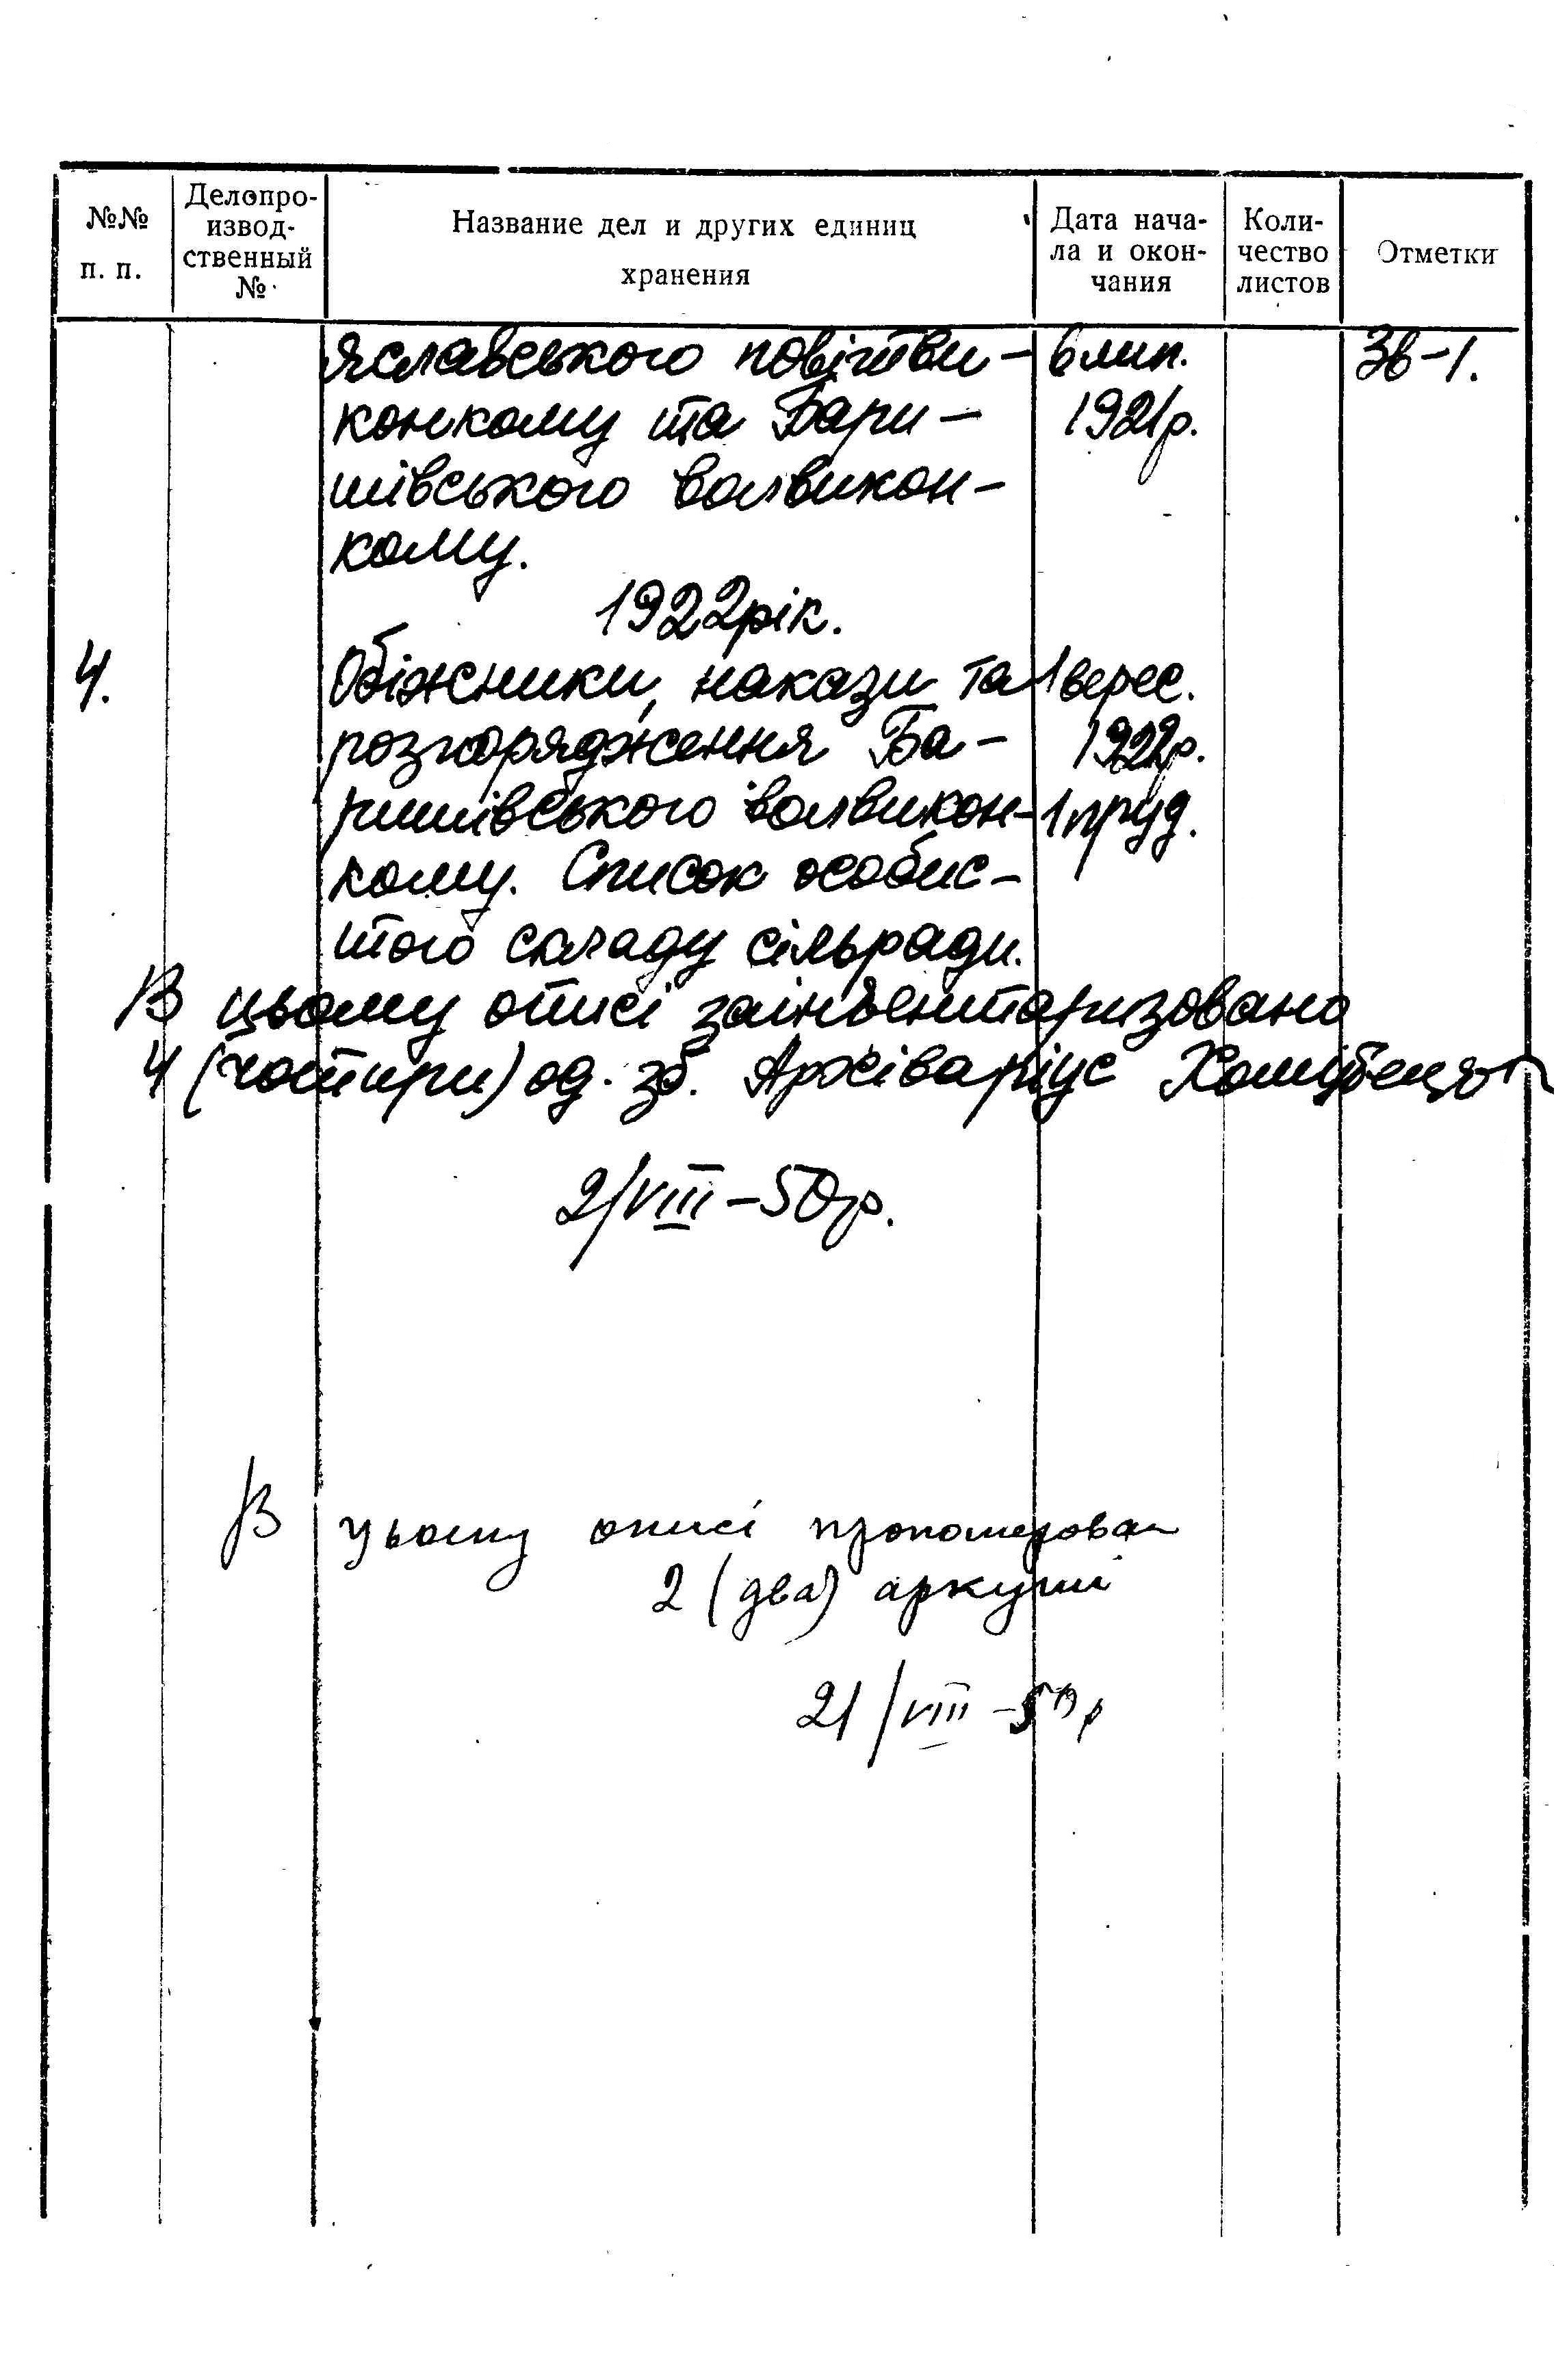 №№ п. п.
Делопро-изводственный №
Название дел и других единиц хранения
Дата начала и окончания
Количество листов
Отметки
яславського повітви- 6 лип. Зв-1.
конкому та Бари- 1921р.
шівського волвикон-
кому.
1922рік.
4. Обіжники, накази та 1 верес.
розпорядження Ба- 1922р.
ришівського волвикон- 1 груд.
кому. Список особис-
того складу сільради.
В цьому описі заінвентаризовано
4 (чотири) од. зб. Архіваріус
2/VIII-50р.
В цьому описі пронумерован
2 (два) аркуші
21/VIII-50р